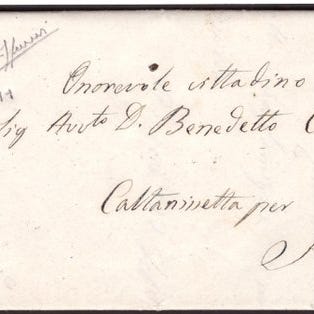 Onorevole cittadino
Sig Avv.to D. Benedetto
Caltanissetta per